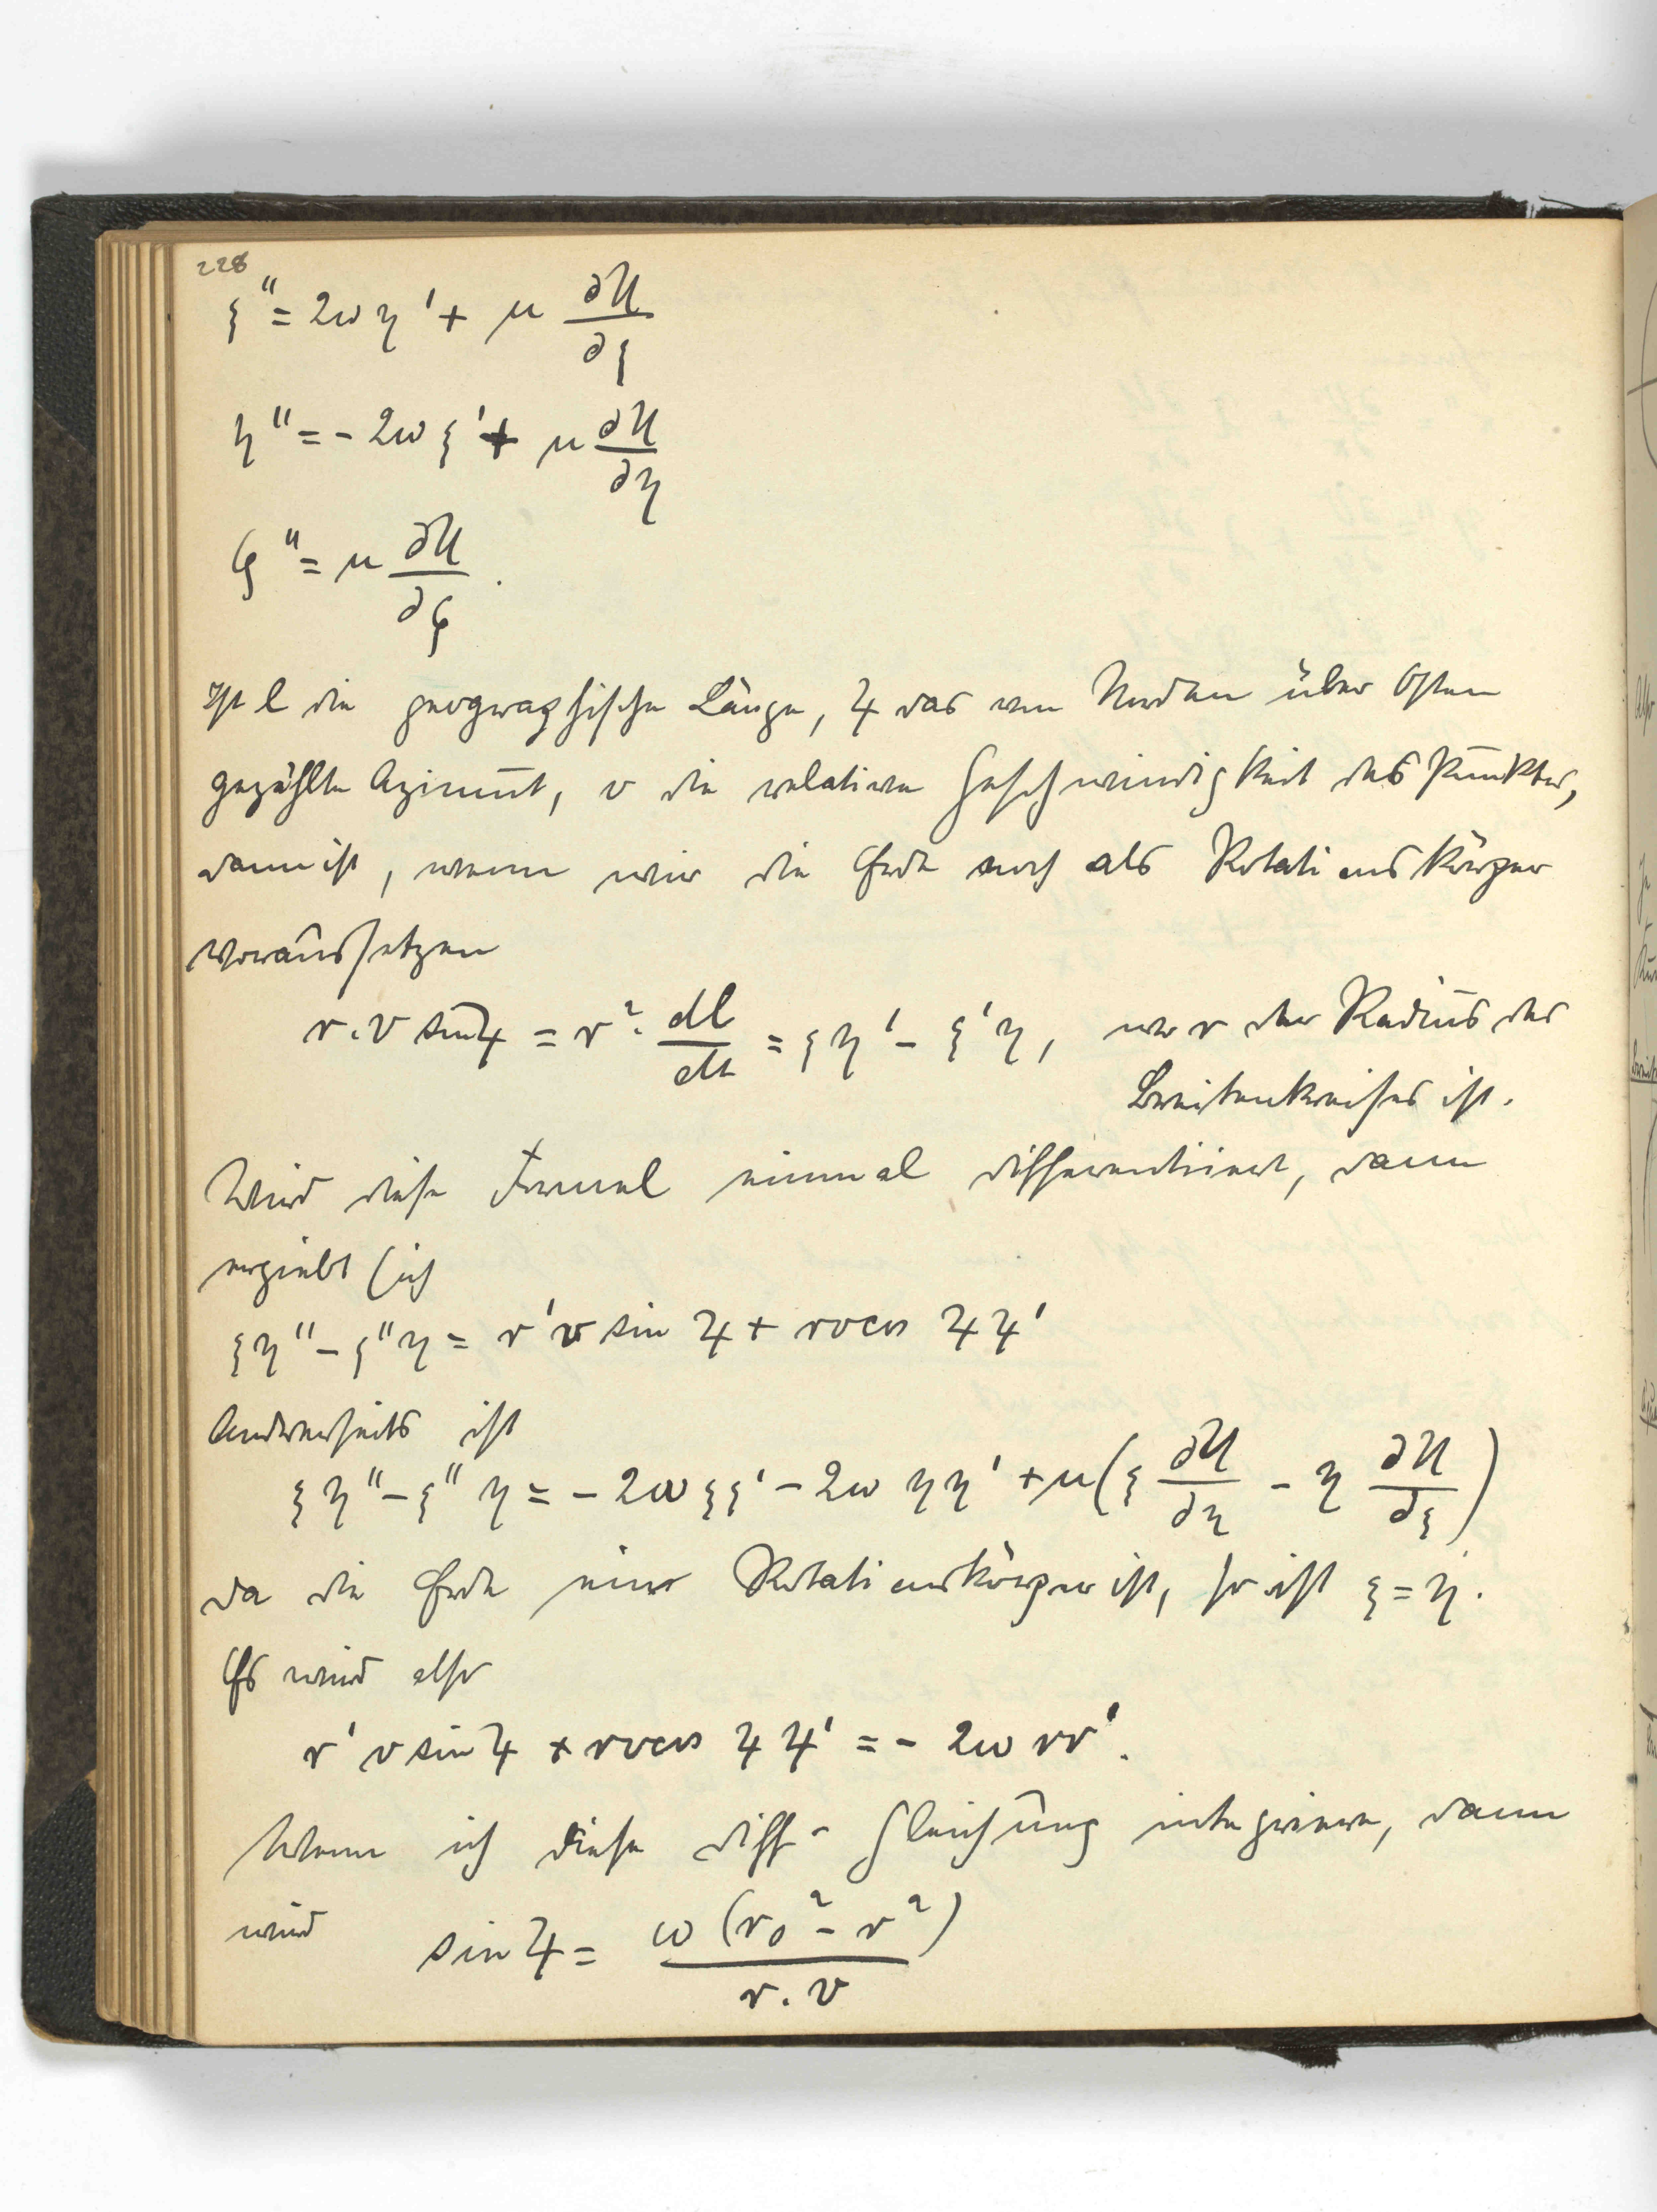 228
ξ'' = 2ω η' + μ ∂U/∂ξ
η'' = - 2ω ξ' + μ ∂U/∂η
ζ'' = μ ∂U/∂ζ .
Ist l die geographische Länge, ψ das von Norden über Osten
gezählte Azimut, v die relative Geschwindigkeit des Punktes,
dann ist, wenn wir die Erde noch als Rotationskörper
voraussetzen
r . v sin ψ = r² . dl/dt = ξη' - ξ'η, wo r der Radius des
Breitenkreises ist.
Wird diese Formel einmal differentiiert, dann
ergiebt sich
ξη'' - ξ''η = r'v sin ψ + rv cos ψ ψ'
Anderseits ist
ξη'' - ξ''η = - 2ω ξξ' - 2ω ηη' + μ(ξ ∂U/∂η - η ∂U/∂ξ)
da die Erde ein Rotationskörper ist, so ist ξ = η.
Es wird also
r' v sin ψ + rv cos ψ ψ' = - 2ω rr'.
Wenn ich diese Diff-Gleichung integriere, dann
wird sin ψ = ω (r₀² - r²) / r . v